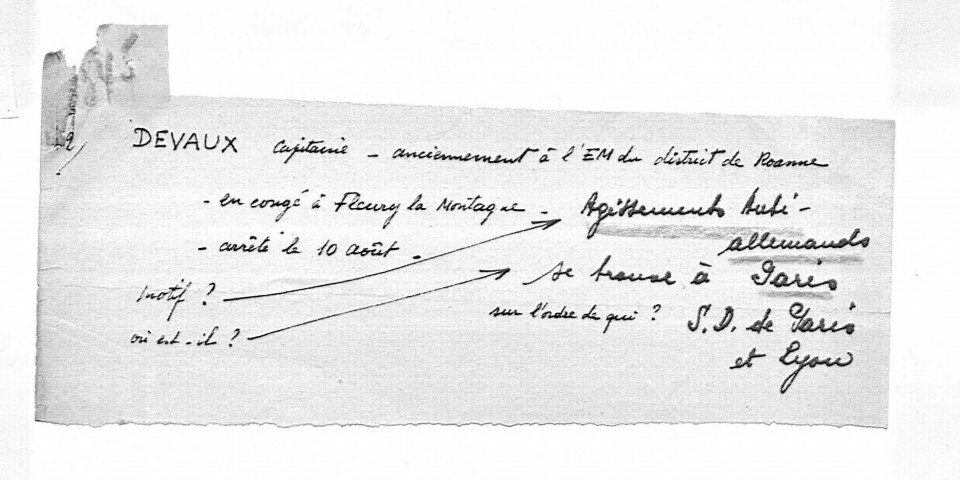 2)
DEVAUX Capitaine - anciennement à l'EM du district de Roanne
- en congé à Fleury la Montagne - Agissements Anti-
allemands
- arrêté le 10 août -
motif ?
se trouve à Paris
où est-il ?
sur l'ordre de qui ? S.D. de Paris
et Lyon